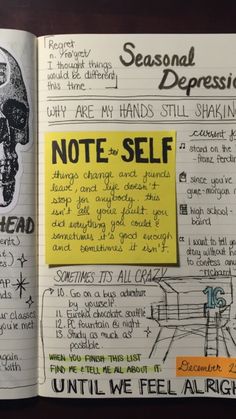 Regret
n. /rəˈɡret/
I thought things
would be different
this time.
Seasonal
Depression
WHY ARE MY HANDS STILL SHAKING
NOTE to SELF
things change and friends
leave, and life doesn't
stop for anybody. this
isn't all your fault you
did everything you could &
sometimes it's good enough
and sometimes it isn't.
current f
stand on the
franz ferdin
since you've
gone - morgan
high school -
baird
I want to tell you
without
richard
HEAD
SOMETIMES IT'S ALL CRAZY
10. Go on a bus adventure
by yourself
11. Eureka chocolate souffle
12. fountain @ night
13. Study as much as
possible.
16
WHEN YOU FINISH THIS LIST
FIND ME & TELL ME ALL ABOUT IT.
December 2
UNTIL WE FEEL ALRIGH